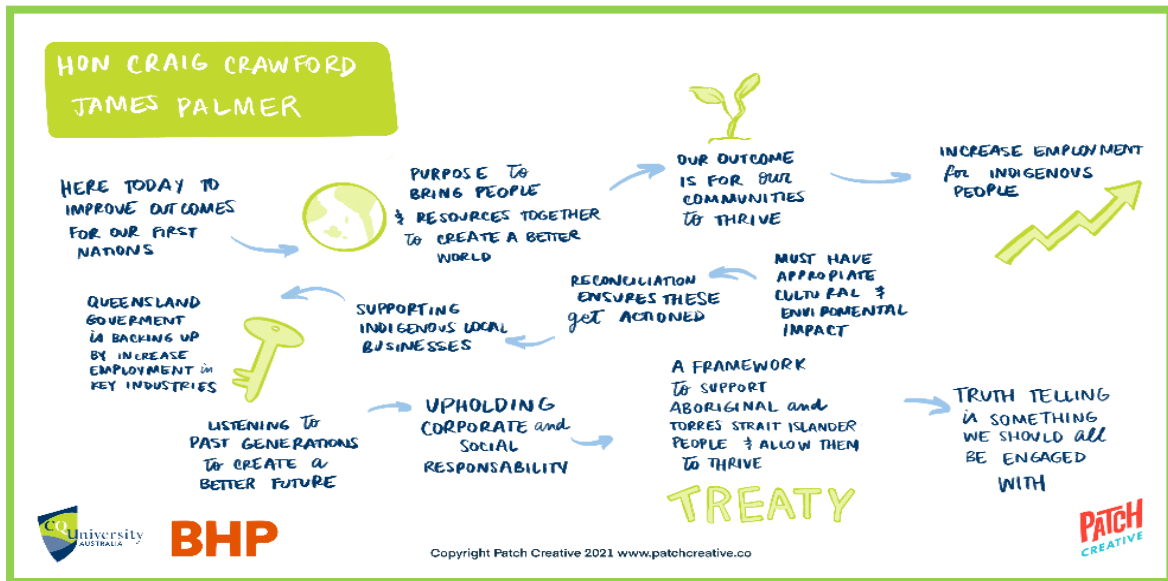 HON CRAIG CRAWFORD
JAMES PALMER
HERE TODAY TO
IMPROVE OUTCOMES
FOR OUR FIRST
NATIONS
PURPOSE to
BRING PEOPLE
& RESOURCES TOGETHER
to CREATE A BETTER
WORLD
OUR OUTCOME
IS FOR our
COMMUNITIES
to THRIVE
INCREASE EMPLOYMENT
for INDIGENOUS
PEOPLE
MUST HAVE
APPROPIATE
CULTURAL &
ENVIROMENTAL
IMPACT
RECONCILIATION
ENSURES THESE
get ACTIONED
SUPPORTING
INDIGENOUS LOCAL
BUSINESSES
QUEENSLAND
GOVERMENT
is BACKING UP
BY INCREASE
EMPLOYMENT in
KEY INDUSTRIES
LISTENING to
PAST GENERATIONS
to CREATE A
BETTER FUTURE
UPHOLDING
CORPORATE and
SOCIAL
RESPONSABILITY
A FRAMEWORK
to SUPPORT
ABORIGINAL and
TORRES STRAIT ISLANDER
PEOPLE & ALLOW THEM
to THRIVE
TREATY
TRUTH TELLING
is SOMETHING
WE SHOULD all
BE ENGAGED
WITH
CQUniversity
AUSTRALIA
BHP
Copyright Patch Creative 2021 www.patchcreative.co
PATCH
CREATIVE